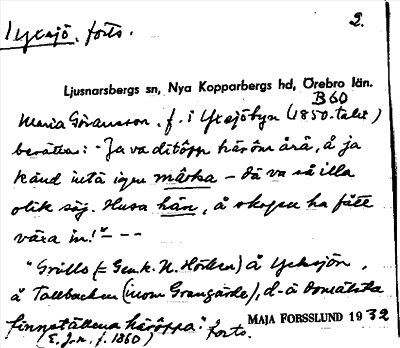 Yxsjö, forts. 2.
Ljusnarsbergs sn, Nya Kopparbergs hd, Örebro län.
B60
Maria Göransson, f. i Yxsjöbyn (1850-talet)
berätta: "Ja va ditöpp här om årä, å ja
känd intä igen märka – dä va så illa
olik säj. Husa hän, å skogen ha fått
växa in!" – – –
"Grills (= Genk. N. Hörken) å Yxsjön,
å Tallbacken (inom Grangärde), d-ä domälska
finnställena häröppa." forts.
(E. J-n, f. 1860)
MAJA FORSSLUND 1932